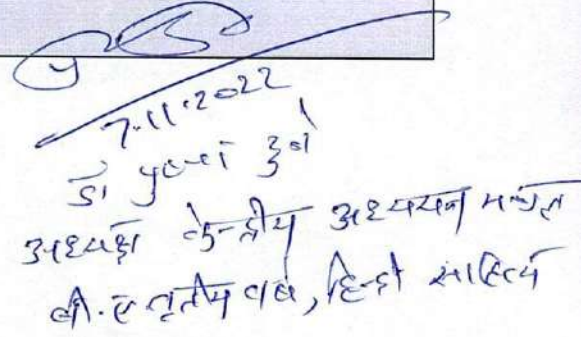 7.11.2022
डॉ
अध्यक्ष केन्द्रीय अध्ययन मण्डल
बी.ए तृतीय वर्ष, हिन्दी साहित्य